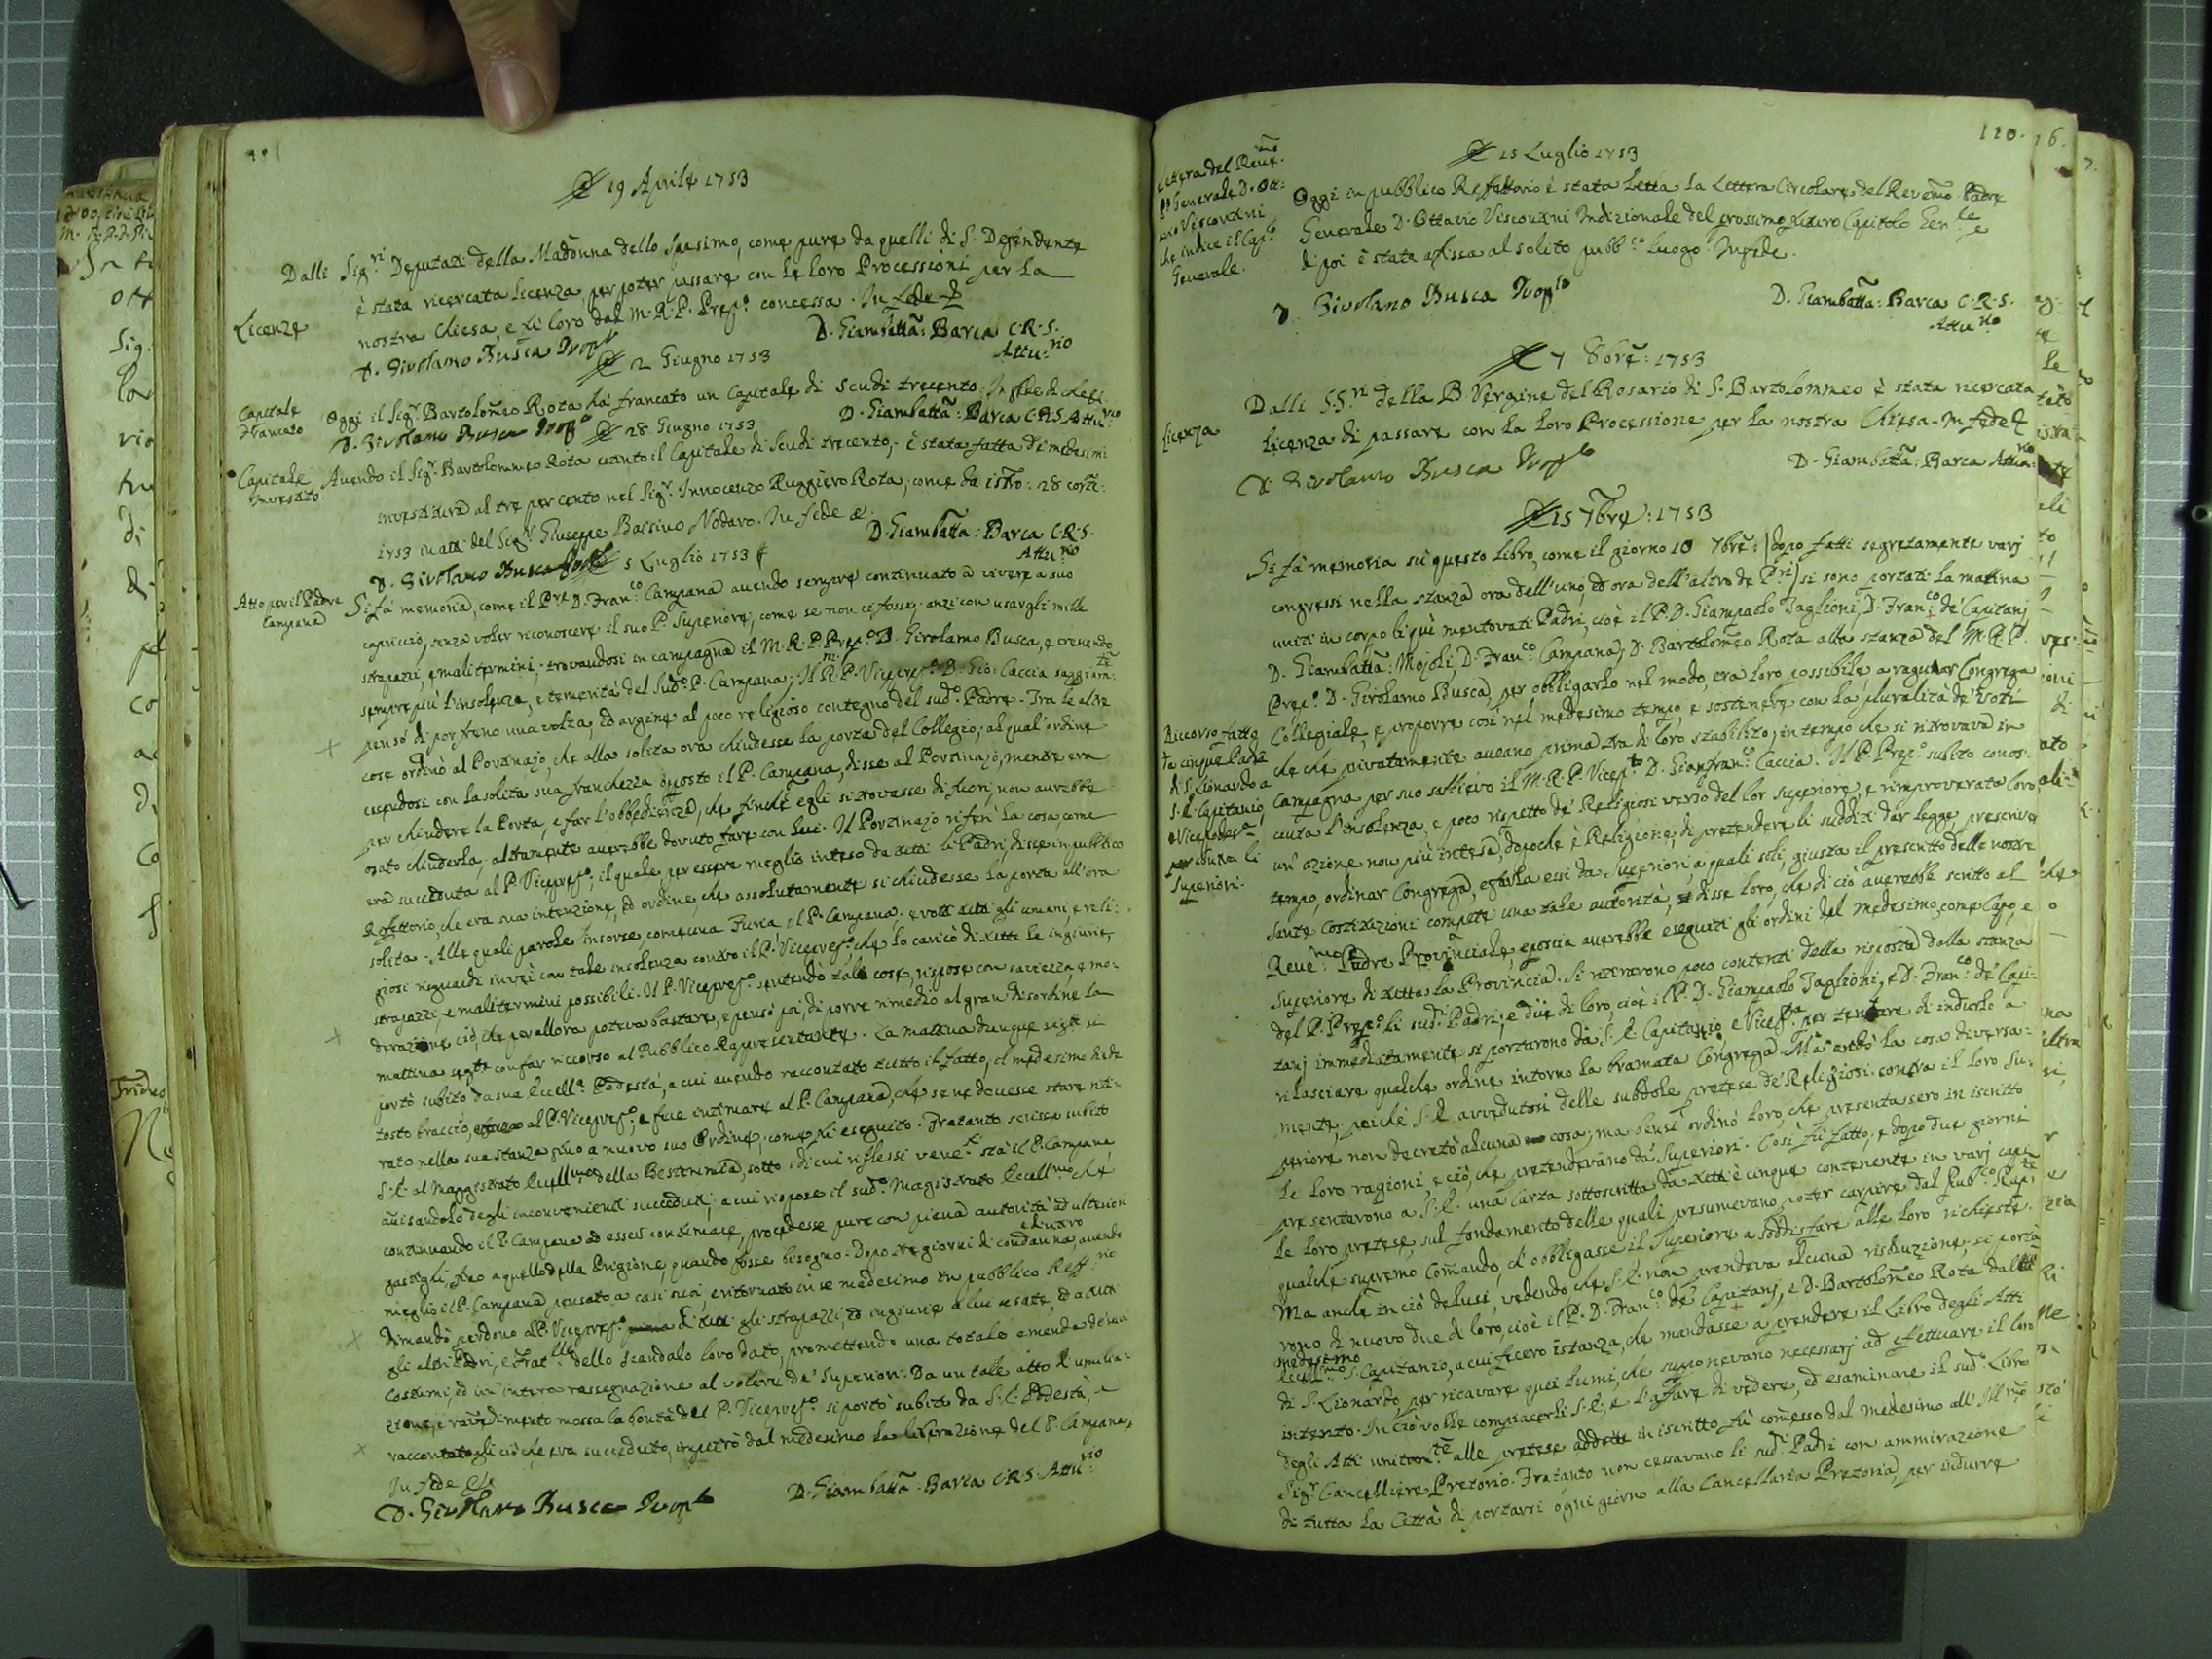 19 Aprile 1753
Dalli Sig.ri Deputati della Madonna dello Spasimo, come pure da quelli di S. Defendente
Licenze
è stata ricercata licenza per poter passare con le loro Processioni per la
nostra Chiesa, e fù loro dal M. R. P. Prep.o concessa. In fede &
D. Girolamo Busca Prop.to
D. Giambatta: Barca C. R. S.
Attu:rio
2 Giugno 1753
Capitale
francato
Oggi il Sig.r Bartolomeo Rota hà francato un Capitale di scudi trecento. In fede di che
D. Girolamo Busca Prop.o
D. Giambatta: Barca C. R. S. Attu:rio
28 Giugno 1753
Capitale
Investito
Avendo il Sig.r Bartolommeo Rota estinto il Capitale di Scudi trecento, è stata fatta de medesimi
investitura al tre per cento nel Sig.r Innocenzo Ruggiero Rota, come da istro: 28 corrte:
1753 in atti del Sig.r Giuseppe Baisino Nodaro. In fede &.
D. Giambatta: Barca C. R. S.
Attu:rio
D. Girolamo Busca
5 Luglio 1753
Atto per il Padre
Campana
Si fà memoria, come il P.re D. Fran.co Campana avendo sempre continuato à vivere a suo
capriccio, senza voler riconoscere il suo P. Superiore, come se non ce fosse, anzi con usargli mille
strapazzi, e mali termini; trovandosi in campagna il M. R. P. Prep.o D. Girolamo Busca, e crescendo
sempre più l'insolenza, e temerità del sud.o P. Campana; Il M. R. P. Viceprep.o D. Gio: Caccia saggiam.te
pensò di por freno una volta, ed argine al poco religioso contegno del sud.o Padre. Tra le altre
cose ordinò al Portinajo, che alla solita ora chiudesse la porta del Collegio; al qual ordine
essendosi con la solita sua franchezza opposto il P. Campana, disse al Portinajo, mentre era
per chiudere la Porta, e far l'obbedienza, che finchè egli si trovasse di fuori, non avrebbe
osato chiuderla; altramente averebbe dovuto fare con lui. Il Portinajo riferì la cosa, come
era succeduta al P. Viceprep.o; il quale per essere meglio inteso da tutti li Padri, disse in pubblico
Refettorio, che era sua intenzione, ed ordine, che assolutamente si chiudesse la porta all'ora
solita. Alle quali parole insorse, come una Furia il P. Campana; e rotti tutti gli umani, e reli:
giosi riguardi inveì con tale insolenza contro il P. Viceprep.o, che lo caricò di tutte le ingiurie,
strapazzi, e mali termini possibili. Il P. Viceprep.o sentendo tali cose, rispose con saviezza, e mo:
derazione ciò, che per allora poteva bastare, e pensò poi, di porre rimedio al gran disordine la
mattina seg.te con far riccorso al Pubblico Rappresentante. La mattina dunque seg.te si
portò subito da sua Eccell.a Podestà, a cui avendo raccontato tutto il fatto, il medesimo diede
tosto braccio, al P. Viceprep.o, e fece intimare al P. Campana, che se ne dovesse stare riti:
rato nella sua stanza fino a nuovo suo Ordine, come fù eseguito. Fratanto scrisse subito
S. E. al Maggistrato Eccell.mo della Bestemmia, sotto i di cui riflessi stà il P. Campana
avisandolo degli inconvenienti succeduti; a cui rispose il sud.o Magistrato Eccell.mo che
continuando il P. Campana ad esser contumace, procedesse pure con piena autorità ad ulteriori
gastighi, fino a quello della Prigione, quando fosse bisogno. Dopo tre giorni di condanna, avendo
meglio il P. Campana pensato a casi suoi, e ritornato in se medesimo in pubblico Reff.rio
dimandò perdono al P. Viceprep.o di tutti gli strapazzi, ed ingiurie a lui usate, ed a tutti
gli altri Padri, e Frat.lli dello scandalo loro dato, promettendo una totale emenda de suoi
Costumi, ed un' intera rassegnazione al volere de' Superiori. Da un tale atto d'umilia:
zione, e ravedimento mossa la bontà del P. Viceprep.o si portò subito da S. E. Podestà, e
raccontatogli ciò che era succeduto, impetrò dal medesimo la liberazione del P. Campana.
In fede &
D. Girolamo Busca Prop.to
D. Giambatta: Barca C. R. S. Attu:rio
120.
15 Luglio 1753
Lettera del Reve.mo
P. Generale D. Ott:
avio Visconti
che indice il Cap.o
Generale.
Oggi in pubblico Reffettorio è stata letta la Lettera Circolare del Reve.mo Padre
Generale D. Ottavio Visconti Indizionale del prossimo futuro Capitolo Gen.le, e
di poi è stata affissa al solito pubb.co luogo. In fede.
D. Girolamo Busca Prop.to
D. Giambatta: Barca C. R. S.
Attu.rio
7 8bre: 1753
Licenza
Dalli S.S.ri della B. Vergine del Rosario di S. Bartolommeo è stata ricercata
licenza di passare con la loro Processione per la nostra Chiesa. In fede &
D. Girolamo Busca Prop.to
D. Giambatta: Barca Attua:rio
15 7bre: 1753
Si fà memoria sù questo libro, come il giorno 10 7bre: dopo fatti segretamente varj
congressi nella stanza ora dell'uno, ed ora dell'altro de P.ri si sono portati la mattina
uniti in corpo li quì mentovati Padri, cioè il P. D. Giampaolo Taglioni, D. Fran.co de' Capitanj
D. Giambatta: Mojoli, D. Fran.co Campana, D. Bartolomeo Rota alla stanza del M. R. P.
Prep.o D. Girolamo Busca, per obbligarlo nel modo, era loro possibile a ragunar Congrega
Riccorso fatto
da cinque Padri
di S. Lionardo a
S. E. Capitanio,
e Vicepodest.
contra li
Superiori.
Collegiale, e proporre così nel medesimo tempo, e sostenere con la pluralità de' voti
che che privatamente aveano prima tra di loro stabilito; in tempo che si ritrovava in
Campagna per suo sollievo il M. R. P. Vicep.to D. Gianfran.co Caccia. Il P. Prep.o subito conos:
ciuta l'insolenza, e poco rispetto de' Religiosi verso del lor Superiore, e rimproverato loro
un' azione non più intesa, dopochè è Religione, di pretendere li sudditi dar legge, prescriver
tempo, ordinar Congrega, e farla essi da Superiori, a quali soli, giusta il prescritto delle nostre
Sante Costituzioni compete una tale autorità, disse loro, che di ciò averebbe scritto al
Reve.mo Padre Provinciale, e poscia averebbe eseguiti gli ordini del medesimo, come Capo, e
Superiore di tutta la Provincia. Si ritirarono poco contenti della risposta dalla stanza
del P. Prep.o li sud.i Padri; e due di loro, cioè il P. D. Giampaolo Taglioni, e D. Fran.co de' Capi:
tanj immediatamente si portarono da S. E. Capitanio, e Vicep.ta per tentare di indurlo a
rilasciare qualche ordine intorno la bramata Congrega. Mà andò la cosa diversa:
mente; poichè S. E. avvedutosi delle subdole pretese de' Religiosi contra il loro Su:
periore non decretò alcuna cosa; ma bensì ordinò loro, che presentassero in iscritto
le loro ragioni, e ciò, che pretendevano da Superiori. Così fù fatto; e dopo due giorni
presentarono a S. E. una Carta sottoscritta da tutti è cinque contenente in varj capi
le loro pretese, sul fondamento delle quali presumevano poter carpire dal Pub.co Rap.te
qualche supremo Comando, ch' obbligasse il Superiore a soddisfare alle loro richieste.
Ma anche in ciò delusi, vedendo che S. E. non prendeva alcuna risoluzione, si porta
rono di nuovo due di loro, cioè il P. D. Fran.co de' Capitanj, e D. Bartolomeo Rota dall'
medesimo
Eccell.mo S. Capitanio, a cui fecero istanza, che mandasse a prendere il Libro degli Atti
di S. Lionardo, per ricavare quei lumi, che supponevano necessarj ad effettuare il loro
intento. In ciò volle compiacerli S. E., e l'affare di vedere, ed esaminare il sud.o Libro
degli Atti unitam.te alle pretese in iscritto fù commesso dal medesimo all' Ill.mo
Sig.r Cancelliere Pretorio. Fratanto non cessavano li sud.i Padri con ammirazione
di tutta la Città di portarsi ogni giorno alla Cancellaria Pretoria, per indurre